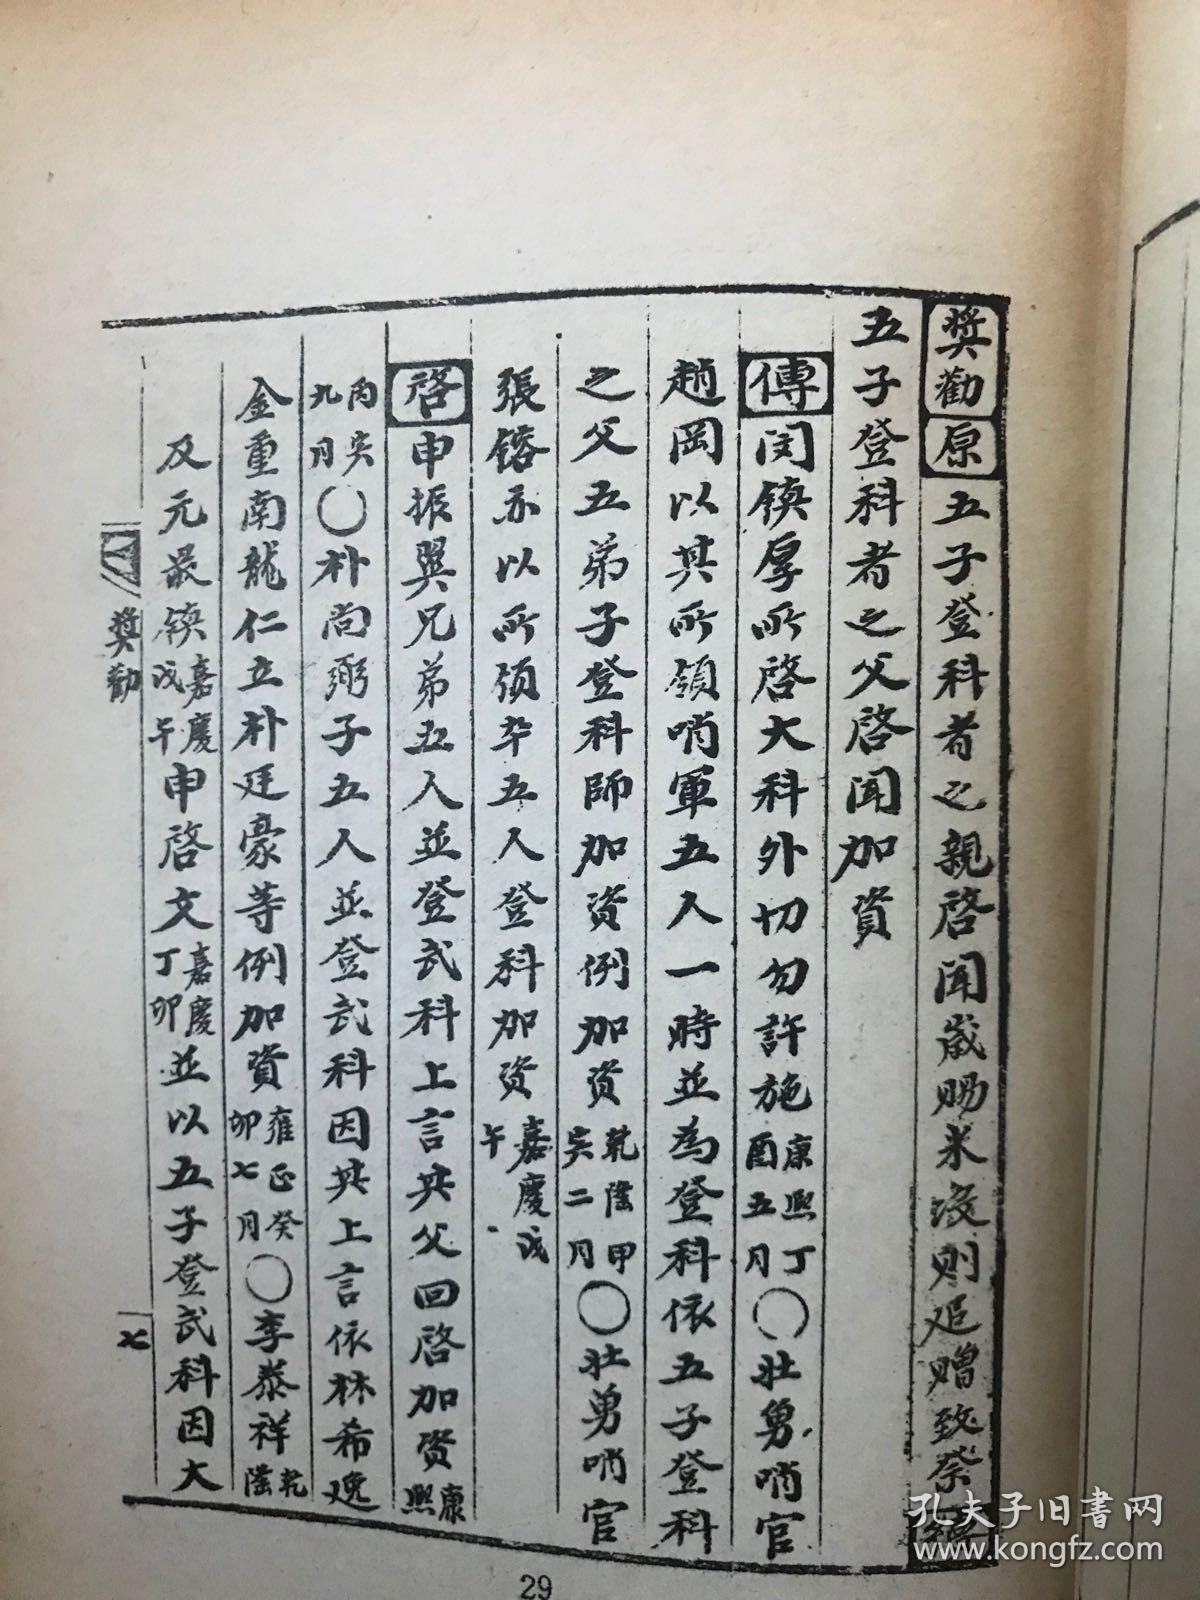 奬勸原五子登科者之親啓聞歲賜米沒則追贈致祭續
五子登科者之父啓聞加資
傳閔鎭厚所啓大科外切勿許施康熙丁酉五月〇壯勇哨官
趙岡以其所領哨軍五人一時並為登科依五子登科
之父五弟子登科師加資例加資乾隆甲寅二月〇壯勇哨官
張鎔亦以所領卒五人登科加資嘉慶戊午
啓申振翼兄弟五人並登武科上言其父回啓加資康熙
丙寅九月〇朴尚弼子五人並登武科因其上言依林希逸
金重南龍仁立朴廷豪等例加資雍正癸卯七月〇李泰祥乾隆
及元最鎮嘉慶戊午申啓文嘉慶丁卯並以五子登武科因大
奬勸
七
29
孔夫子旧書网
www.kongfz.com